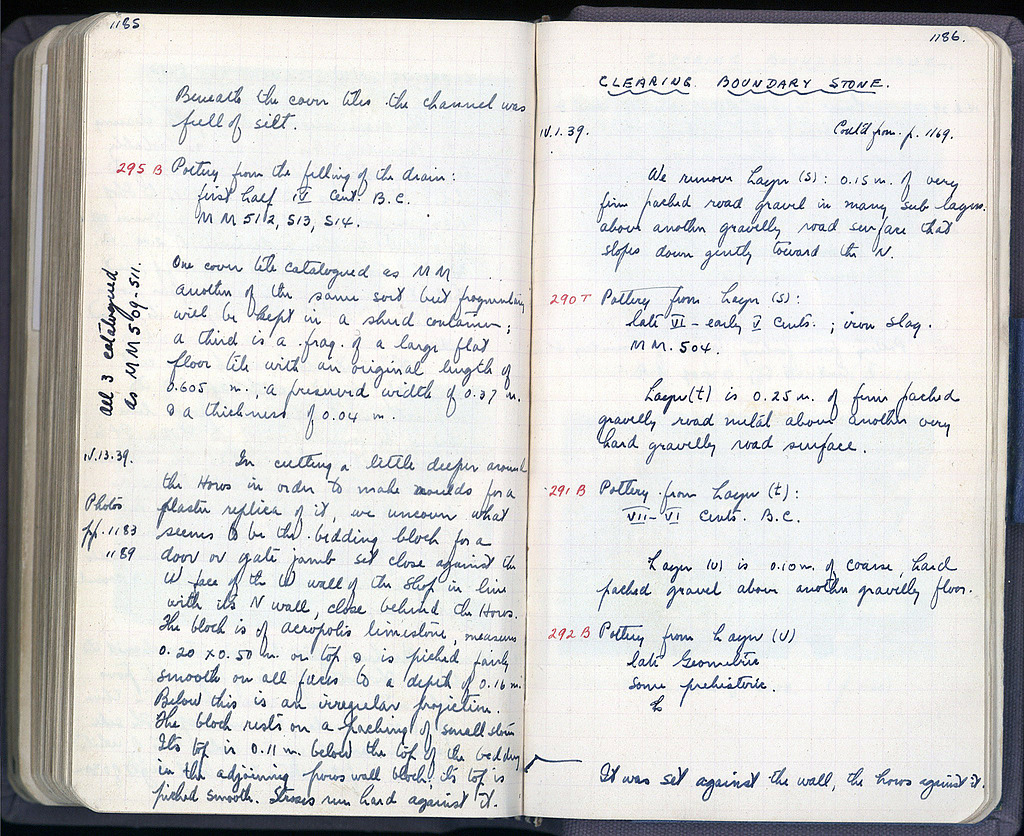 1185
Beneath the cover tiles the channel was
full of silt.
295 B Pottery from the filling of the drain:
first half IV Cent. B.C.
MM 512, 513, 514.
all 3 catalogued
as MM 509-511.
One cover tile catalogued as MM
another of the same sort but fragmentary
will be kept in a shed container;
a third is a frag. of a large flat
floor tile with an original length of
0.605 m., a preserved width of 0.37 m.
& a thickness of 0.04 m.
IV.13.39. In cutting a little deeper around
the Horos in order to make moulds for a
plaster replica of it, we uncover what
Photos
pp. 1183
1189
seems to be the bedding block for a
door or gate jamb set close against the
W face of the W wall of the Shop in line
with its N wall, close behind the Horos.
The block is of acropolis limestone, measures
0.20 x 0.50 m. on top & is picked fairly
smooth on all faces to a depth of 0.16 m.
Below this is an irregular projection.
The block rests on a packing of small stone
Its top is 0.11 m. below the top of the bedding
in the adjoining poros wall block; its top is
picked smooth. Stroses run hard against it.
1186.
CLEARING BOUNDARY STONE.
IV.1.39. Cont'd from p. 1169.
We remove Layer (S): 0.15 m. of very
firm packed road gravel in many sub layers
above another gravelly road surface that
slopes down gently toward the N.
290 T Pottery from Layer (S):
late VI - early V Cents.; iron slag.
MM. 504.
Layer (t) is 0.25 m. of firm packed
gravelly road metal above another very
hard gravelly road surface.
291 B Pottery from Layer (t):
VII-VI Cents. B.C.
Layer (U) is 0.10 m. of coarse, hard
packed gravel above another gravelly floor.
292 B Pottery from Layer (U)
late Geometric
some prehistoric.
It was set against the wall, the horos against it.